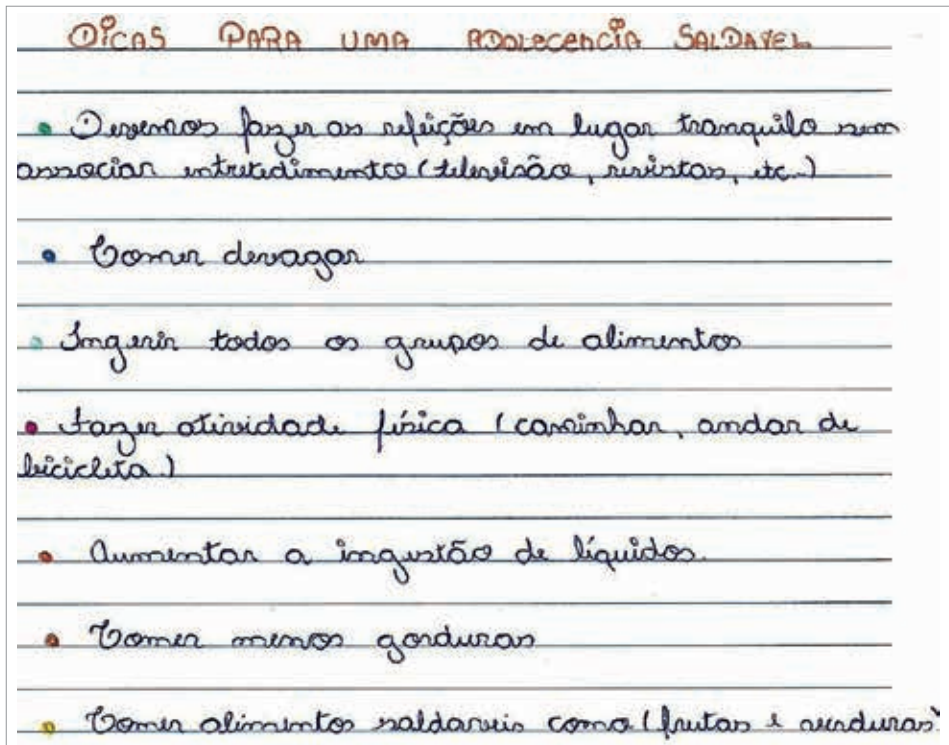 DICAS PARA UMA ADOLECENCIA SALDAVEL
• Devemos fazer as refeições em lugar tranquilo sem
associar entretedimento (televisão, revistas, etc..)
• Comer devagar
• Ingerir todos os grupos de alimentos
• Fazer atividade física (caminhar, andar de
bicicleta.)
• Aumentar a ingestão de líquidos.
• Comer menos gorduras
• Comer alimentos saldaveis como (frutas e verduras)